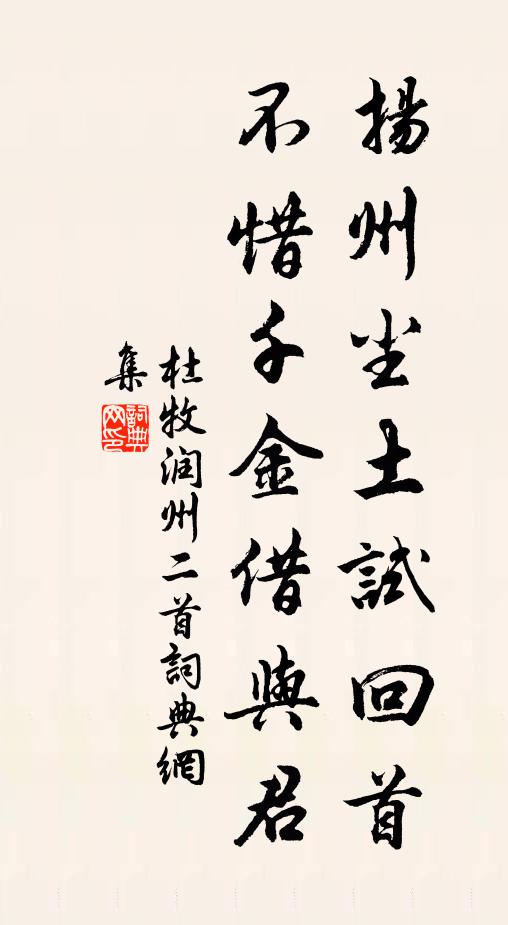 揚州尘土試回首
不惜千金借與君
杜牧润州二首詞典網
集
詞典
网印